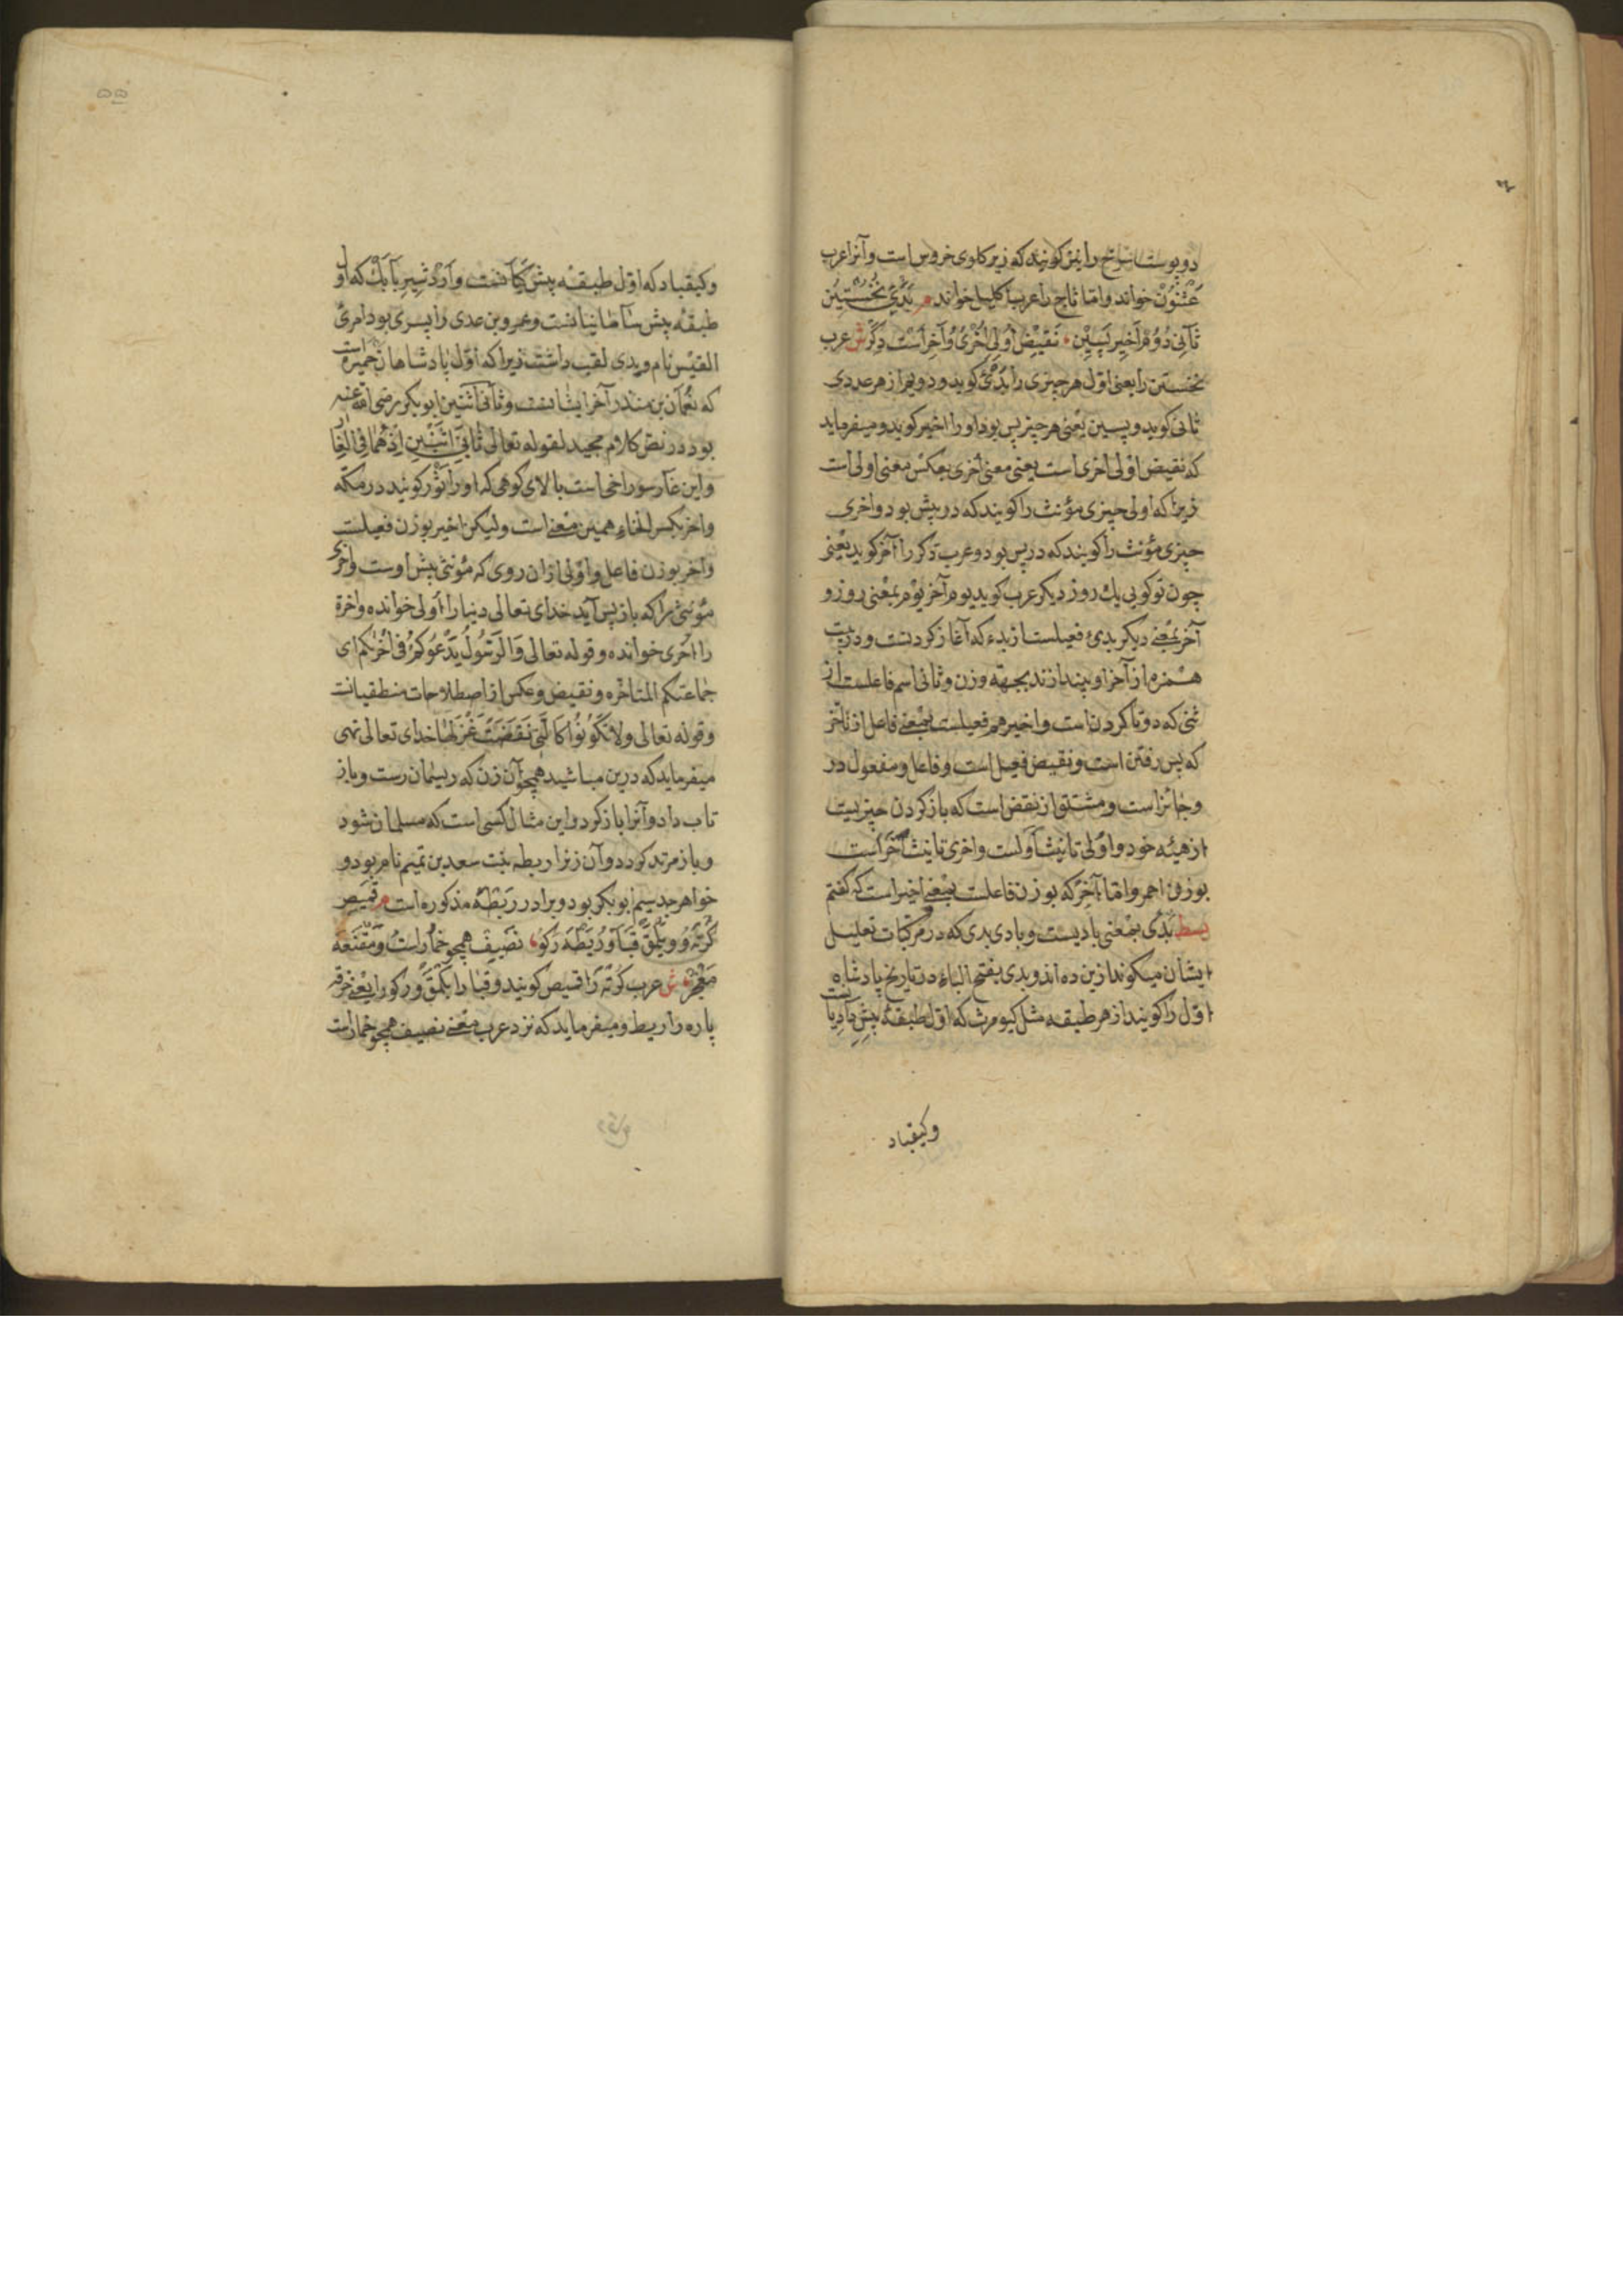 دو پوست سرخ را نیز گویند که زیر گلوی خروس است و آنرا عرب
عثنون خواند و اما تاج را عرب اکلیل خواند م بدئ نخستین
ثانی دوم و اخیر پسین نقیض اولی اخری و آخر است دگر ش عرب
نخستین را یعنی اول هر چیزی را بدئ کوید و دویم را از هر عددی
ثانی کوید و پسین یعنی هر چیز پس بود او را اخیر کوید و میفرماید
که نقیض اولی اخری است یعنی معنی اخری بعکس معنی اولی است
زیرا که اولی چیزی مؤنث را کویند که در پیش بود و اخری
چیزی مؤنث را کویند که در پس بود و عرب دکر را آخر کوید یعنی
چون تو کویی یک روز دیکر عرب کوید یوم آخر یوم بمعنی روز و
آخر بمعنی دیکر بدئ فعیلست از بدء که آغاز کردنست و درین بیت
همزه از آخر او بیندازند بجهة وزن و ثانی اسم فاعلست از
ثنی که دو تا کردن است و اخیر هم فعیلست بمعنی فاعل از تأخر
که پس رفتن است و نقیض فعیل است و فاعل و مفعول در
و جائز است و مشتق از نقض است که باز کردن چیزیست
از هیئه خود و اولی تانیث اولست و اخری تانیث آخر است
بوزن احمر و اما آخر که بوزن فاعلست بمعنی اخیر است که کفتم
بسط بدی بمعنی بادیست و بادی بدی که در مرکبات تعلیل
ایشان میکوند ازین ده اند و بدی بفتح الباء در تاریخ پادشاه
اول را کویند از هر طبقه مثل کیومرث که اول طبقهٔ پیش دادیانست
وکیقباد
وکیقباد که اول طبقه پیش کیانست و اردشیر بابک که اول
طبقه پیش ساسانیانست و عمرو بن عدی را پسری بود امرئ
القیس نام و بدی لقب داشت زیرا که اول پادشاهان حمیره است
که نعمان بن منذر آخر ایشانست و ثانی اثنین ابوبکر رضی الله عنه
بود در نص کلام مجید لقوله تعالی ثانی اثنین اذ هما فی الغار
و این غار سوراخی است بالای کوهی که او را ثور کویند در مکه
و اخر بکسر الخاء همین معنی است و لیکن اخیر بوزن فعیلست
و اخر بوزن فاعل و اولی ازان روی که مؤنثی پیش اوست و اخری
مؤنثی را که باز پس آید خدای تعالی دنیا را اولی خوانده و اخرة
را اخری خوانده و قوله تعالی والرسول یدعوکم فی اخریکم ای
جماعتکم المتاخره و نقیض و عکس از اصطلاحات منطقیانست
و قوله تعالی ولا تکونوا کالتی نقضت غزلها خدای تعالی نهی
میفرماید که درین مباشید همچو آن زن که ریسمان رست و باز
تاب داد و آنرا باز کرد و این مثال کسی است که مسلمان شود
و باز مرتد کردد و آن زنرا ریطه بنت سعد بن تمیم نام بود و
خواهر جد سیم ابوبکر بود و برادر ریطهٔ مذکوره است م قمیص
کرته و یلمق قبا و ریطه رکو نصیف همچو خمار است و مقنعه
معجر ش عرب کرته را قمیص کویند و قبا را یلمق و رکو را یعنی خرقه
پاره را ریط و میفرماید که نزد عرب معنی نصیف همچو خمار است